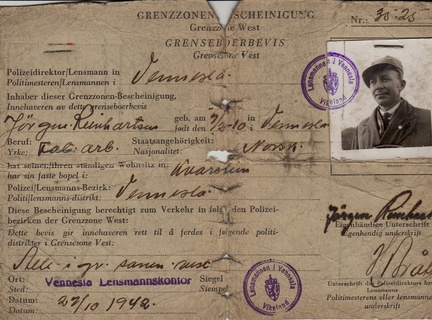 GRENZZONEN-BESCHEINIGUNG
Grenzzone West
GRENSEBOERBEVIS
Grensesone Vest
Nr.: 30-25
Polizeidirektor/Lensmann in
Politimesteren/Lensmannen i Vennesla.
Inhaber dieser Grenzonen-Bescheinigung,
Innehaveren av dette grenseboerbevis
Jörgen Reinhartsen geb. am in Vennesla
født den i
Beruf: Staatsangehörigkeit: Norsk.
Yrke: Fab. arb. Nasjonalitet:
hat seinen/ihren ständigen Wohnsitz in
har sin faste bopel i: Kvarstein
Polizei/Lensmanns-Bezirk:
Politi/lensmanns-distrikt: Vennesla.
Diese Bescheinigung berechtigt zum Verkehr in folgenden Polizei-
bezirken der Grenzzone West:
Dette bevis gir innehaveren rett til å ferdes i følgende politi-
distrikter i Grensesone Vest:
Ort: Siegel
Sted: Vennesla Lensmannskontor Stempel
Datum:
Datum: 27/10 1942.
Lensmannen i Vennesla
Vikeland
Jörgen Reinhartsen
Eigenhändige Unterschrift
Egenhendig underskrift
Lensmannen i Vennesla
Vikeland
Unterschrift des Polizeidirektors bezw.
Lensmanns
Politimesterens eller lensmannens
underskrift